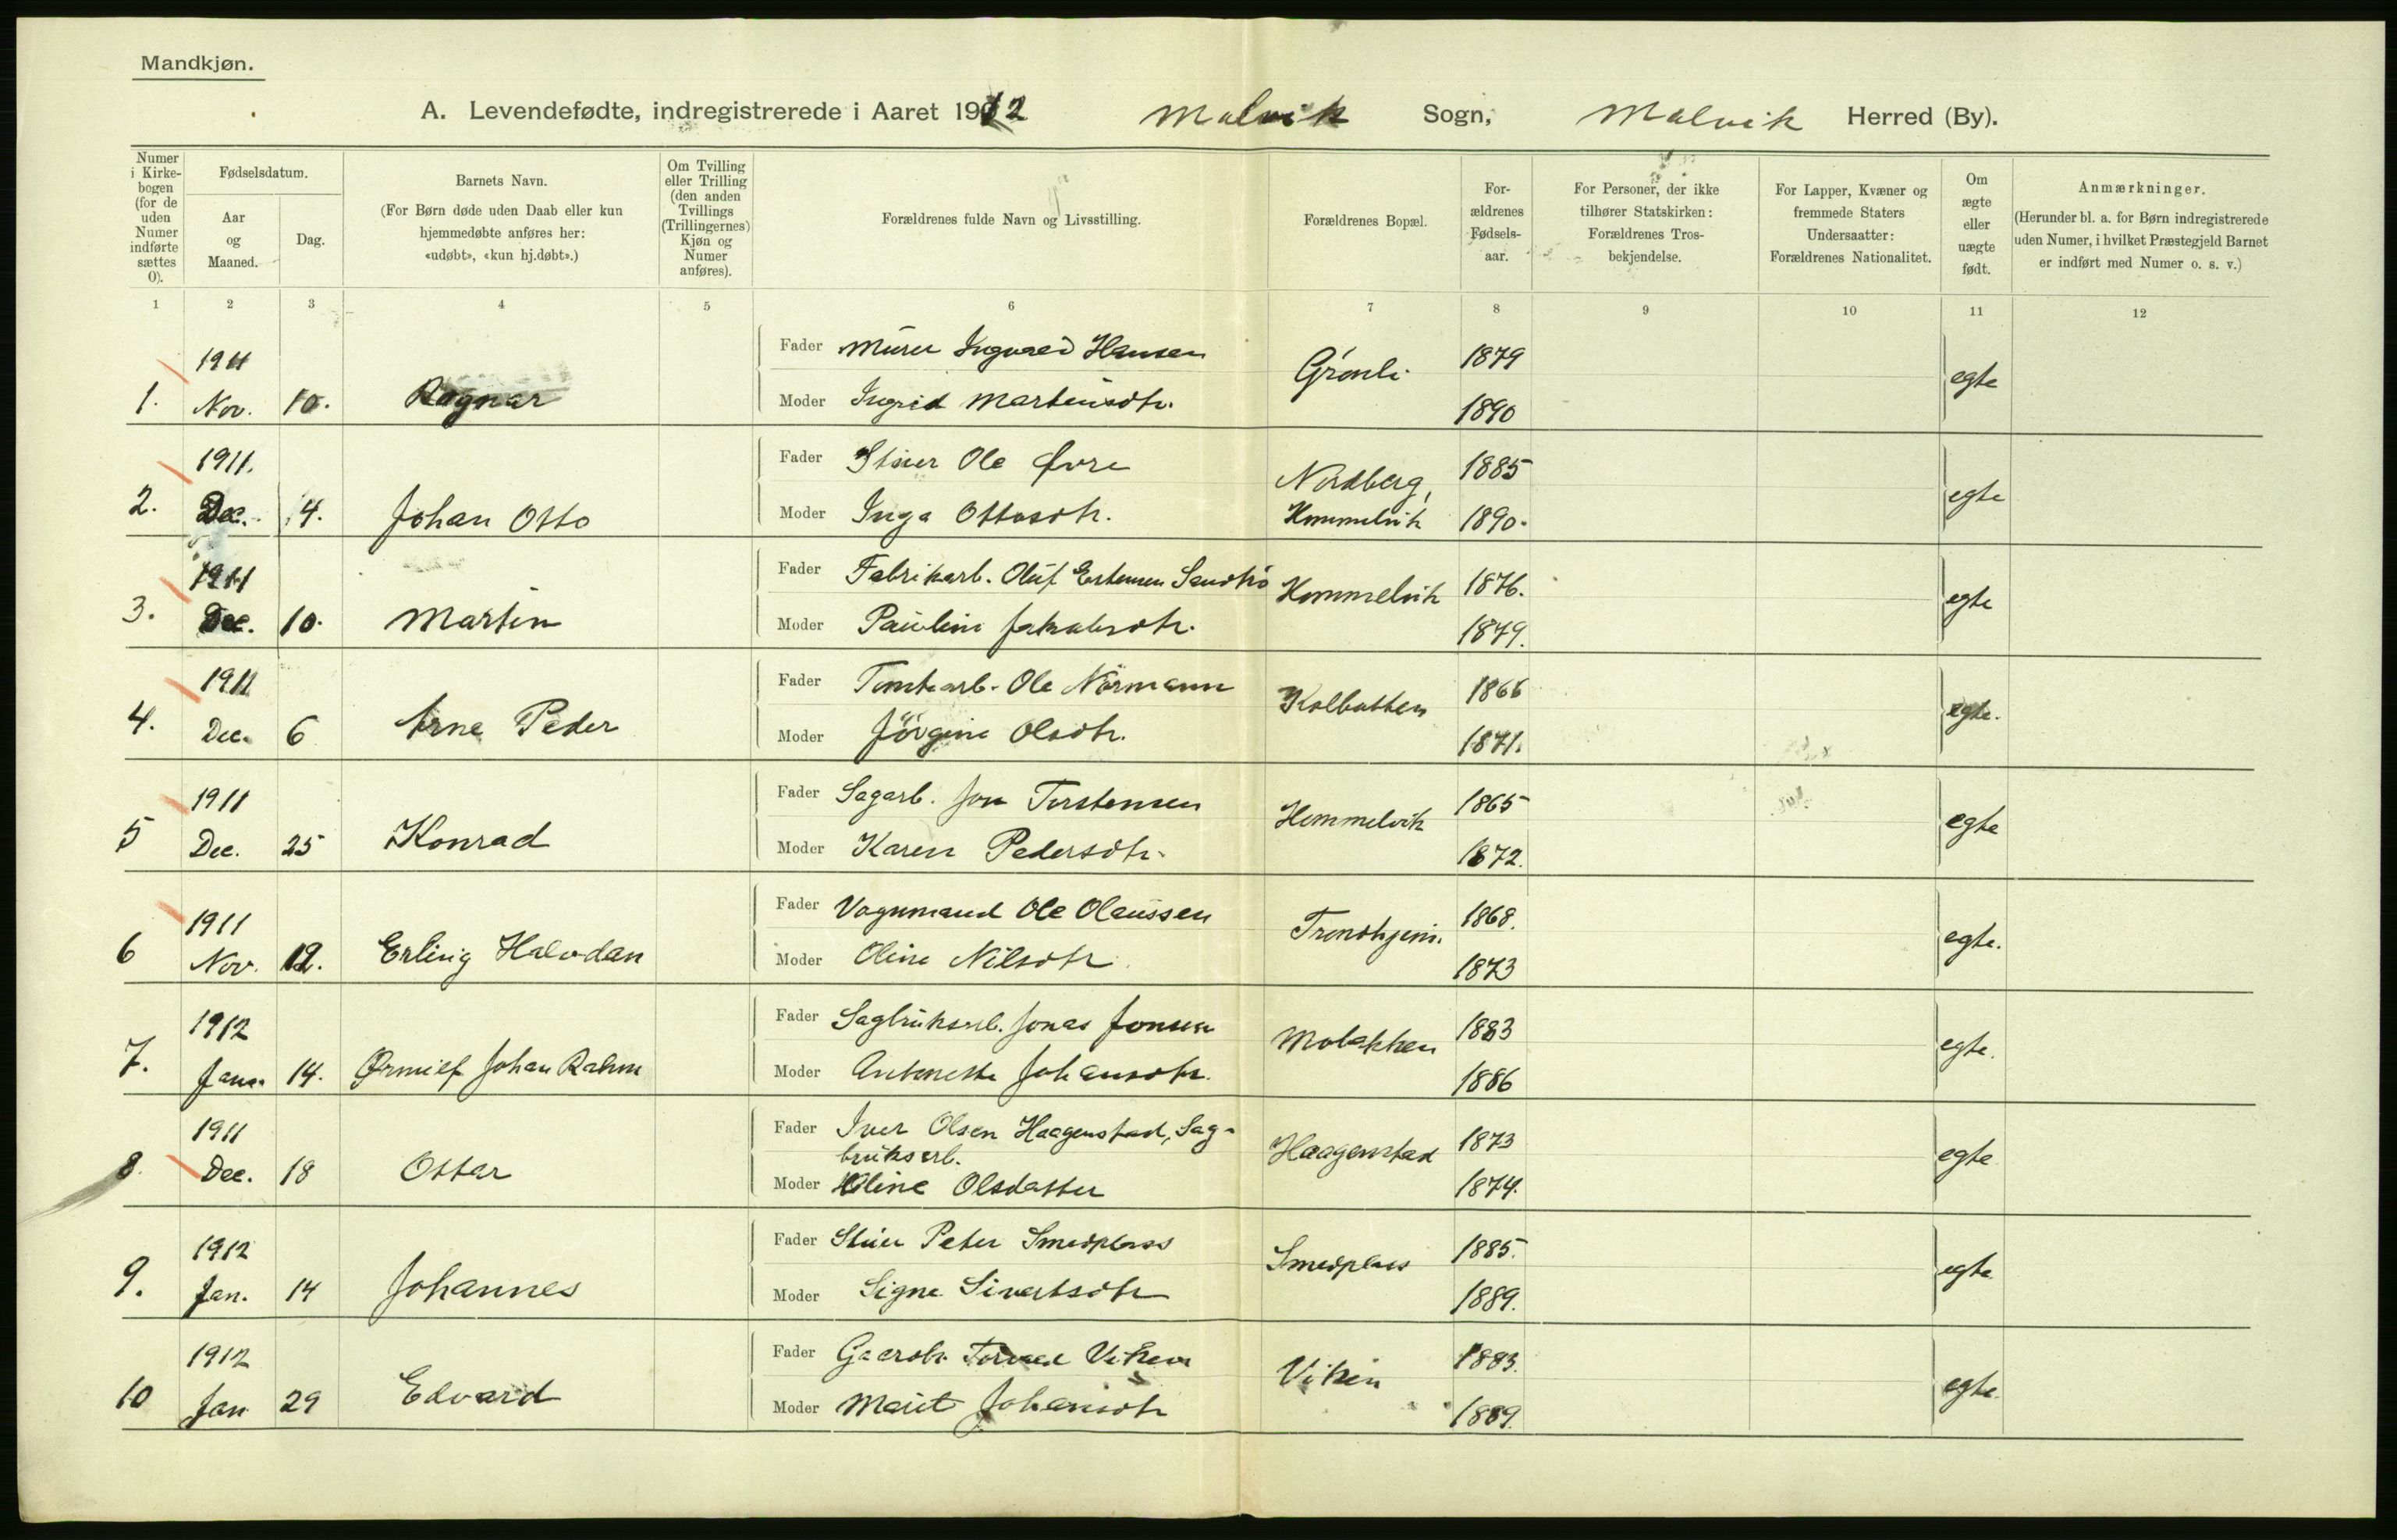 Mandkjøn.
A. Levendefødte, indregistrerede i Aaret 1912 Malvik Sogn, Malvik Herred (By).
Numer i Kirkebogen (for de uden Numer indførte sættes 0).
Fødselsdatum.
Aar og Maaned.
Dag.
Barnets Navn.
(For Børn døde uden Daab eller kun hjemmedøbte anføres her: «udøbt», «kun hj.døbt».)
Om Tvilling eller Trilling (den anden Tvillings (Trillingernes) Kjøn og Numer anføres).
Forældrenes fulde Navn og Livsstilling.
Forældrenes Bopæl.
Forældrenes Fødselsaar.
For Personer, der ikke tilhører Statskirken: Forældrenes Trosbekjendelse.
For Lapper, Kvæner og fremmede Staters Undersaatter: Forældrenes Nationalitet.
Om ægte eller uægte født.
Anmærkninger.
(Herunder bl. a. for Børn indregistrerede uden Numer, i hvilket Præstegjeld Barnet er indført med Numer o. s. v.)
1 2 3 4 5 6 7 8 9 10 11 12
1. 1911 Nov. 10. Ragnar
Fader Murer Ingvald Hansen Grønli 1879 egte
Moder Ingrid Martinsdtr. 1890
2. 1911. Dec. 4. Johan Otto
Fader Stuer Ole Øvre Nordberg, 1885 egte
Moder Inga Ottosdtr. Hommelvik 1890.
3. 1911 Dec. 10. Martin
Fader Fabrikarb. Oluf Estensen Sandhö Hommelvik 1876. egte
Moder Pauline Jakobsdtr. 1879.
4. 1911 Dec. 6 Arne Peder
Fader Tomtearb. Ole Nörmann Kolbutten 1866 egte.
Moder Jörgine Olsdtr. 1871.
5 1911 Dec. 25 Konrad
Fader Sagarb. Jon Torstensen Hommelvik 1865 egte
Moder Karen Pedersdtr. 1872.
6 1911 Nov. 12. Erling Halvdan
Fader Vognmand Ole Olaussen Trondhjem. 1868. egte.
Moder Oline Nilsdtr. 1873
7. 1912 Janr. 14. Ørmulf Johan Rahm
Fader Sagbruksarb. Jonas Jonsen Mobakken 1883 egte.
Moder Antonette Johansdtr. 1886
8. 1911 Dec. 18 Ottar
Fader Iver Olsen Haagenstad, Sagbruksarb. Haagenstad 1873 egte
Moder Oline Olsdatter 1874.
9. 1912 Jan. 14 Johannes
Fader Stuer Peter Smedplass Smedplass 1885. egte
Moder Signe Sivertsdtr 1889.
10 1912 Jan 29 Edvard
Fader Gaardbr. Torvald Viken Viken 1883. egte.
Moder Marit Johansdtr 1889.